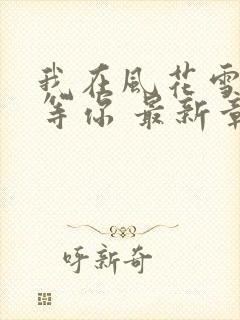 我在風花雪
等你 最新章
呼新奇